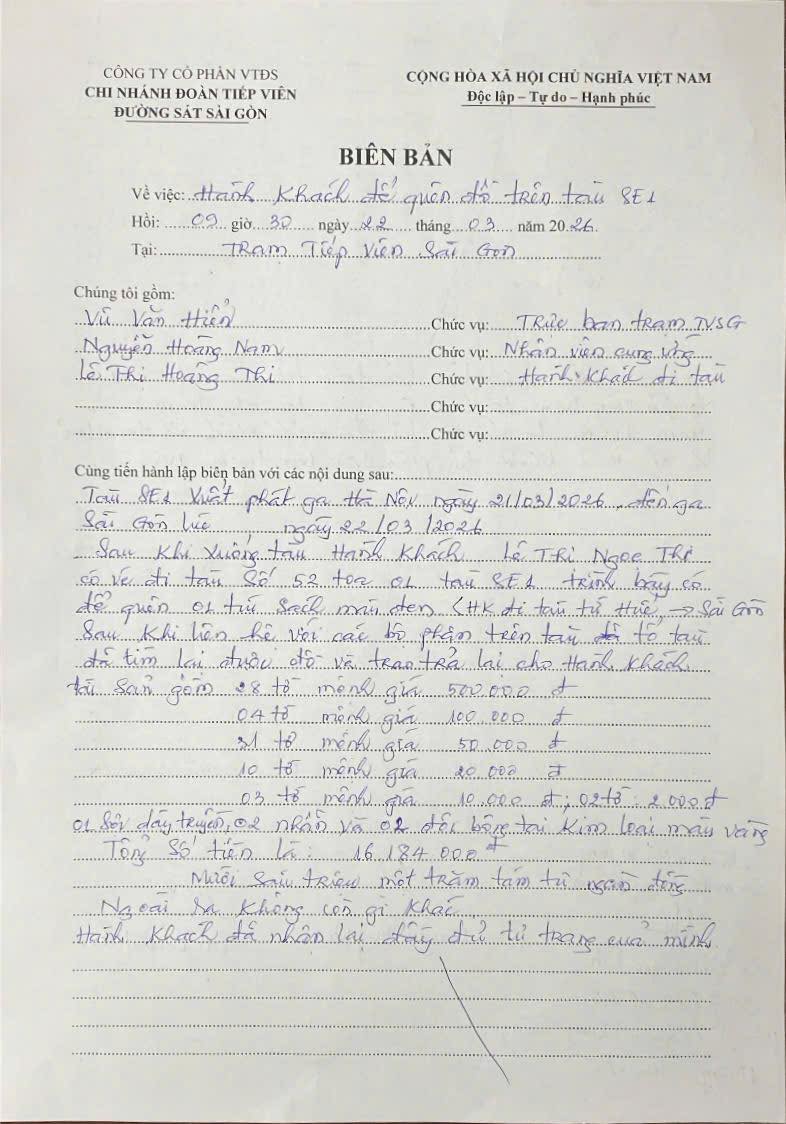 CÔNG TY CỔ PHẦN VTĐS
CHI NHÁNH ĐOÀN TIẾP VIÊN
ĐƯỜNG SẮT SÀI GÒN
CỘNG HÒA XÃ HỘI CHỦ NGHĨA VIỆT NAM
Độc lập – Tự do – Hạnh phúc
BIÊN BẢN
Về việc: Hành Khách để quên đồ trên tàu SE1
Hồi: 09 giờ 30 ngày 22 tháng 03 năm 2026.
Tại: Trạm Tiếp Viên Sài Gòn
Chúng tôi gồm:
Vũ Văn Hiển Chức vụ: Trực ban trạm TVSG
Nguyễn Hoàng Nam Chức vụ: Nhân viên cung ứng
Lê Thị Hoàng Thi Chức vụ: Hành Khách đi tàu
Chức vụ:
Chức vụ:
Cùng tiến hành lập biên bản với các nội dung sau:
Tàu SE1 xuất phát ga Hà Nội ngày 21/03/2026 đến ga
Sài Gòn lúc ngày 22/03/2026
Sau khi xuống tàu Hành Khách Lê Thị Ngọc Thi
có vé đi tàu Số 52 toa 01 tàu SE1 trình bày có
để quên 01 túi sách màu đen (HK đi tàu từ Huế → Sài Gòn
Sau khi liên hệ với các bộ phận trên tàu tổ tàu
đã tìm lại được đồ và trao trả lại cho Hành Khách
tài sản gồm 28 tờ mệnh giá 500.000 đ
04 tờ mệnh giá 100.000 đ
31 tờ mệnh giá 50.000 đ
10 tờ mệnh giá 20.000 đ
03 tờ mệnh giá 10.000 đ; 02 tờ: 2.000 đ
01 Sợi dây truyền, 02 nhẫn và 02 đôi bông tai kim loại màu vàng
Tổng Số tiền là: 16.184.000 đ
Mười Sáu triệu một trăm tám tư ngàn đồng
Ngoài ra không còn gì khác
Hành Khách đã nhận lại đầy đủ tư trang của mình